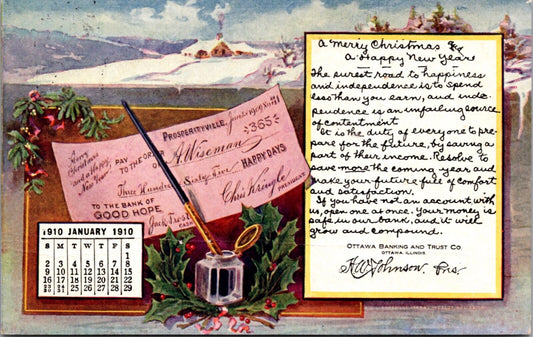 A Merry Christmas &
A Happy New Year
The surest road to happiness
and independence is to spend
less than you earn, and inde-
pendence is an unfailing source
of contentment
It is the duty of everyone to pre-
pare for the future, by saving a
part of their income. Resolve to
save more the coming year and
make your future full of comfort
and satisfaction.
If you have not an account with
us, open one at once. Your money is
safe in our bank, and it will
grow and compound.
OTTAWA BANKING AND TRUST CO.
OTTAWA ILLINOIS
H W Johnson Pres.
PROSPERITYVILLE,
A Merry
Christmas
and a Happy
New Year
$365
PAY TO THE ORDER
OF A. Wiseman
Three Hundred Sixty Five HAPPY DAYS
TO THE BANK OF
GOOD HOPE
Jack Frost
CASH
Chris Kringle
PRESIDENT
1910 JANUARY 1910
S M T W T F S
1
2 3 4 5 6 7 8
9 10 11 12 13 14 15
16 17 18 19 20 21 22
23 24 25 26 27 28 29
30 31